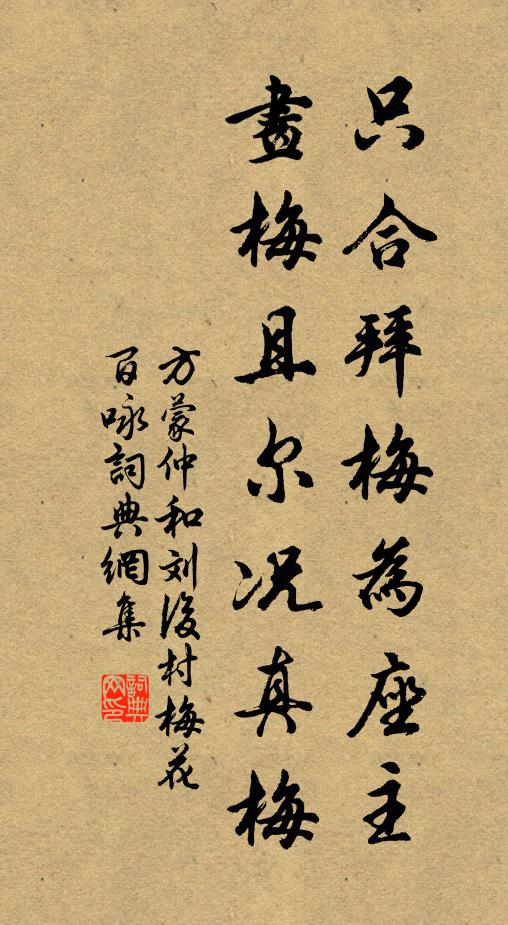 只合拜梅為座主
畫梅且尔况真梅
方蒙仲和刘後村梅花
百咏詞典網集
詞典